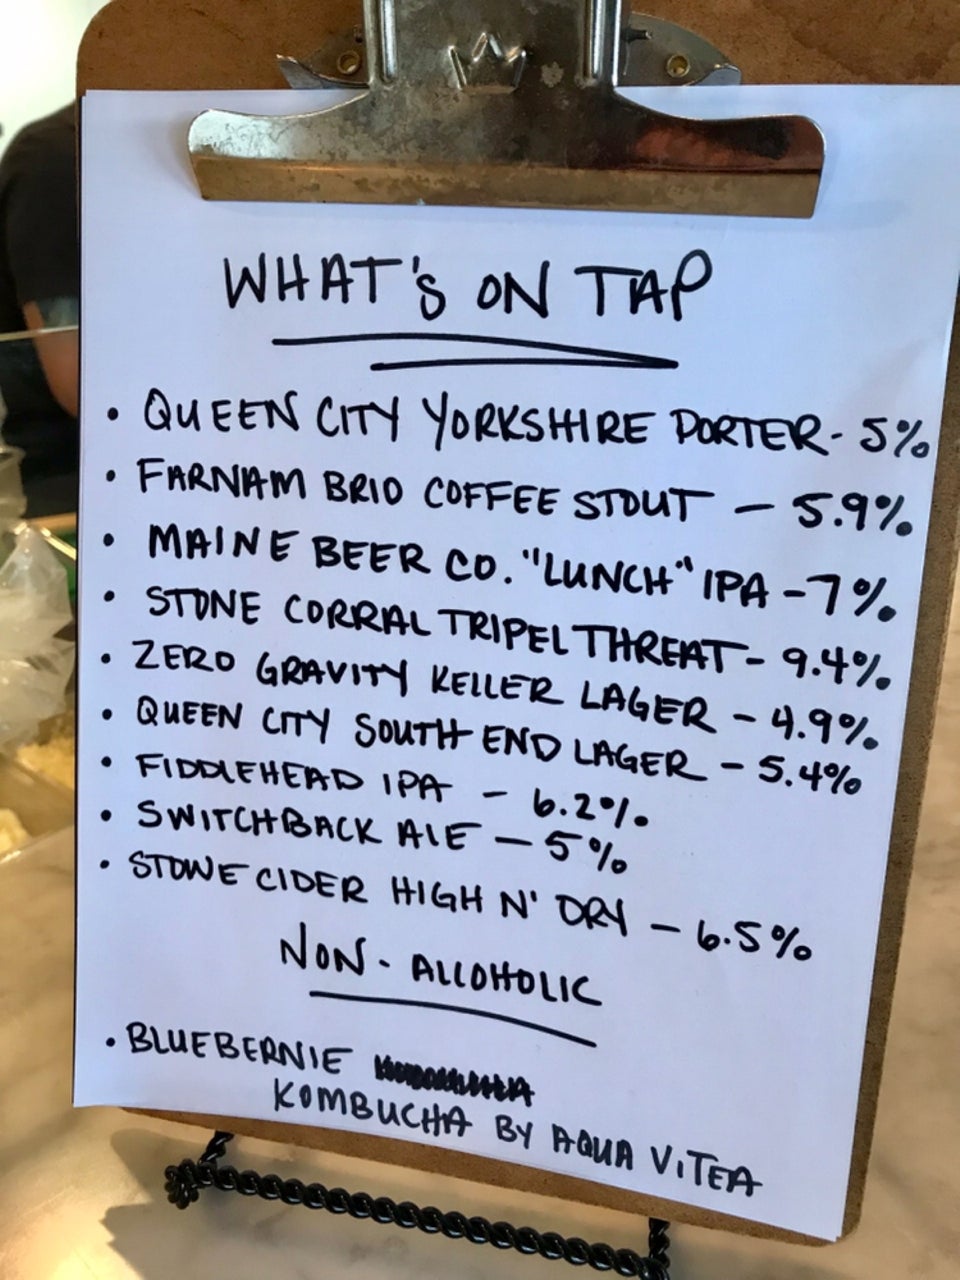 WHAT'S ON TAP
• QUEEN CITY YORKSHIRE PORTER - 5%
• FARNAM BRIO COFFEE STOUT — 5.9%
• MAINE BEER CO. "LUNCH" IPA - 7%
• STONE CORRAL TRIPEL THREAT - 9.4%
• ZERO GRAVITY KELLER LAGER - 4.9%
• QUEEN CITY SOUTH END LAGER - 5.4%
• FIDDLEHEAD IPA - 6.2%
• SWITCHBACK ALE — 5%
• STOWE CIDER HIGH N' DRY — 6.5%
NON - ALCOHOLIC
• BLUEBERNIE
KOMBUCHA BY AQUA VITEA